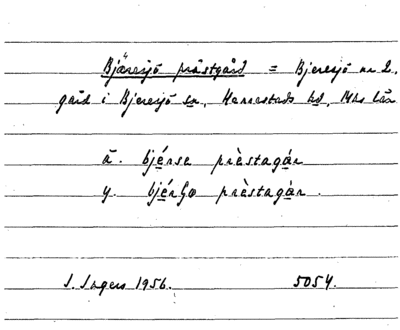 Bjæresjö prästgård = Bjeresjö nr 2,
gård i Bjeresjö sn, Herrestads hd, Mhs län
ä. bjérse prèstagár
y. bjérʃø prèstagár.
1956. 5054.